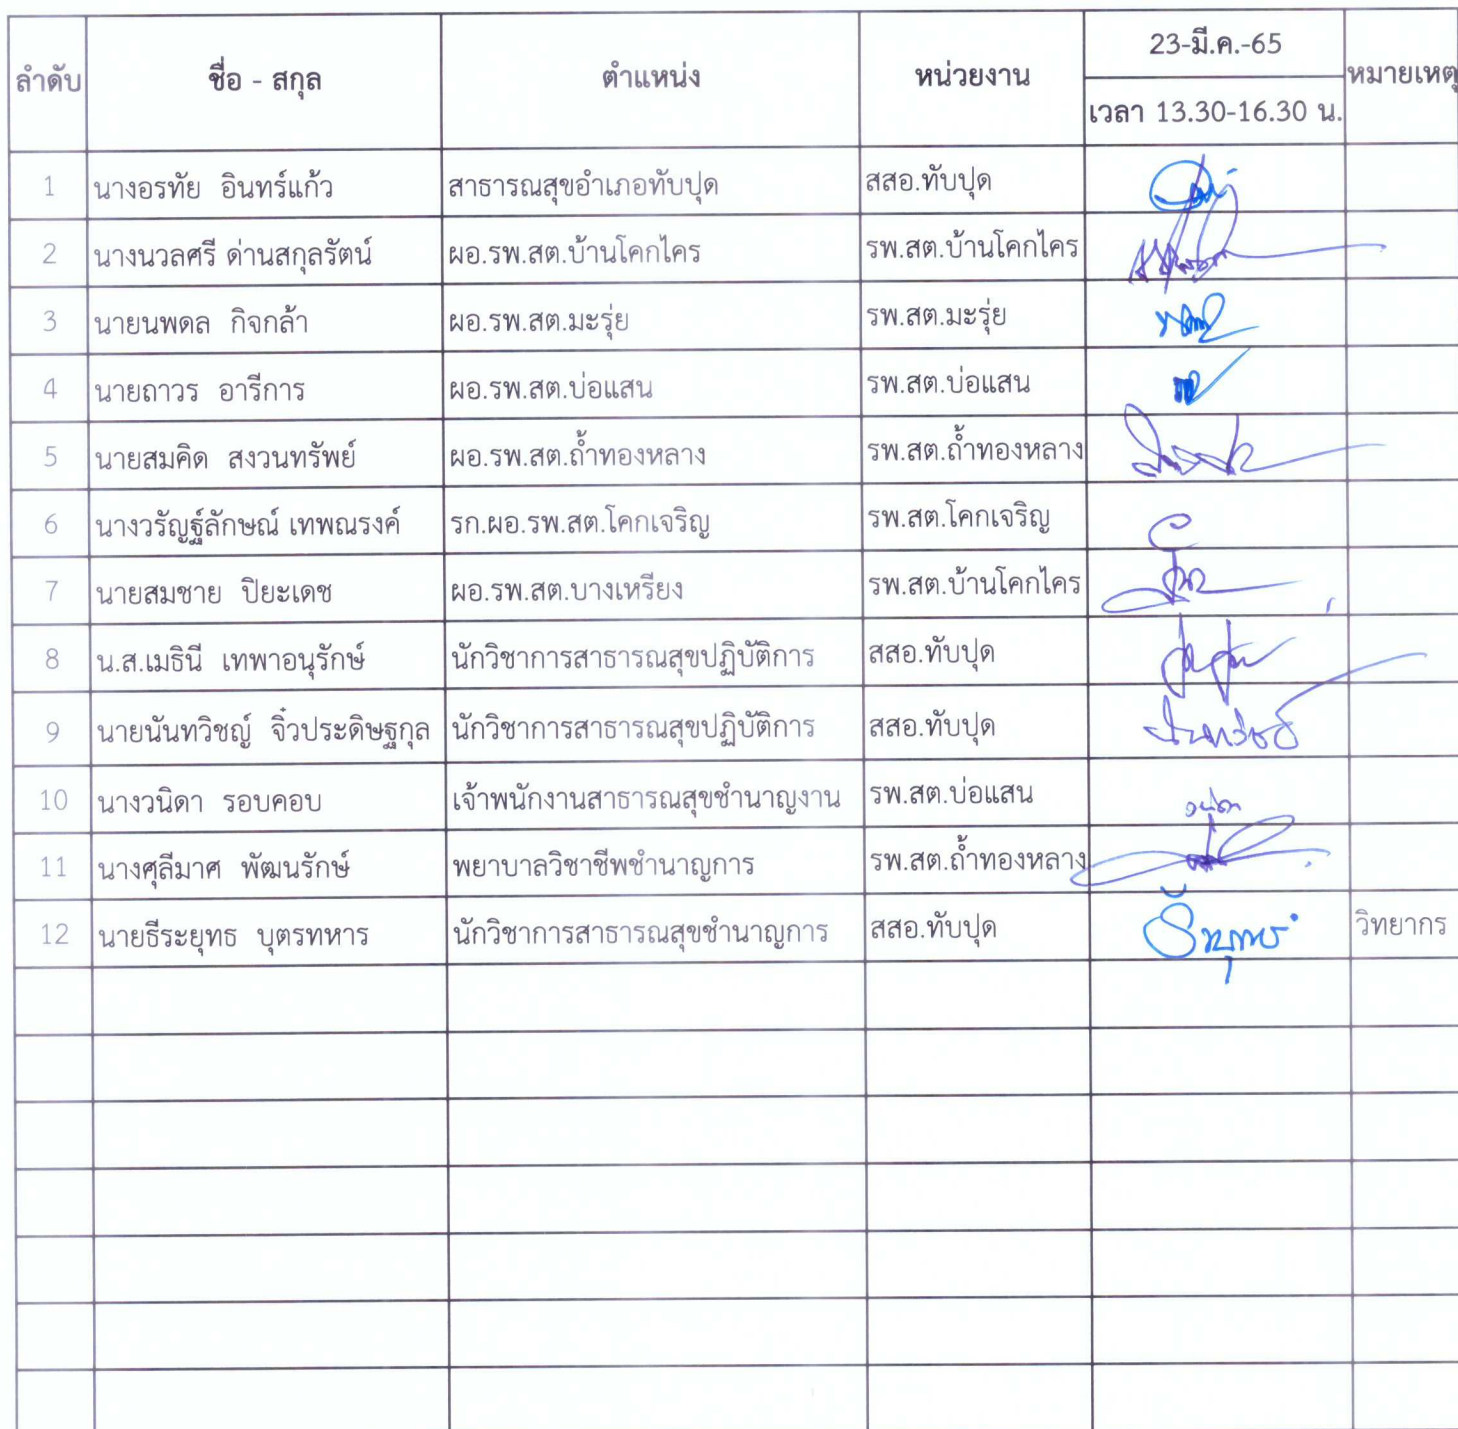 ลำดับ ชื่อ - สกุล ตำแหน่ง หน่วยงาน 23-มี.ค.-65 หมายเหตุ
เวลา 13.30-16.30 น.
1 นางอรทัย อินทร์แก้ว สาธารณสุขอำเภอทับปุด สสอ.ทับปุด
2 นางนวลศรี ด่านสกุลรัตน์ ผอ.รพ.สต.บ้านโคกไคร รพ.สต.บ้านโคกไคร
3 นายนพดล กิจกล้า ผอ.รพ.สต.มะรุ่ย รพ.สต.มะรุ่ย
4 นายถาวร อารีการ ผอ.รพ.สต.บ่อแสน รพ.สต.บ่อแสน
5 นายสมคิด สงวนทรัพย์ ผอ.รพ.สต.ถ้ำทองหลาง รพ.สต.ถ้ำทองหลาง
6 นางวรัญฐ์ลักษณ์ เทพณรงค์ รก.ผอ.รพ.สต.โคกเจริญ รพ.สต.โคกเจริญ
7 นายสมชาย ปิยะเดช ผอ.รพ.สต.บางเหรียง รพ.สต.บ้านโคกไคร
8 น.ส.เมธินี เทพาอนุรักษ์ นักวิชาการสาธารณสุขปฏิบัติการ สสอ.ทับปุด
9 นายนันทวิชญ์ จิ๋วประดิษฐกุล นักวิชาการสาธารณสุขปฏิบัติการ สสอ.ทับปุด
10 นางวนิดา รอบคอบ เจ้าพนักงานสาธารณสุขชำนาญงาน รพ.สต.บ่อแสน วนิดา
11 นางศุลีมาศ พัฒนรักษ์ พยาบาลวิชาชีพชำนาญการ รพ.สต.ถ้ำทองหลาง
12 นายธีระยุทธ บุตรทหาร นักวิชาการสาธารณสุขชำนาญการ สสอ.ทับปุด วิทยากร